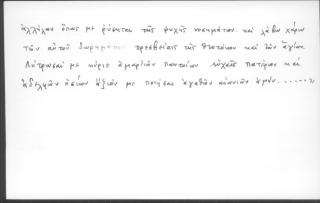 ἀλλήλων ὅπως με ῥύσεται τῆς ψυχῆς νοσημάτων. καὶ λάβω χάριν
τῶν αὐτοῦ δωρημάτων πρεσβείαις τῆς Θεοτόκου καὶ τῶν ἁγίων.
Λύτρωσαί με κύριε ἁμαρτιῶν παντοίων εὐχαῖς πατέρων καὶ
ἀδελφῶν ὁσίων ἄξιόν με ποιῆσαι ἀγαθῶν αἰωνίων ἀμήν.......